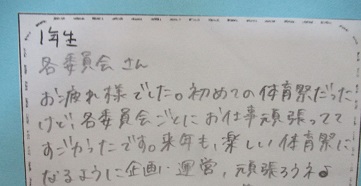 1年生
各委員会さん
お疲れ様でした。初めての体育祭だった
けど、各委員会ごとにお仕事頑張ってて
すごかったです。来年も、楽しい体育祭に
なるように企画、運営、頑張ろうネ♪